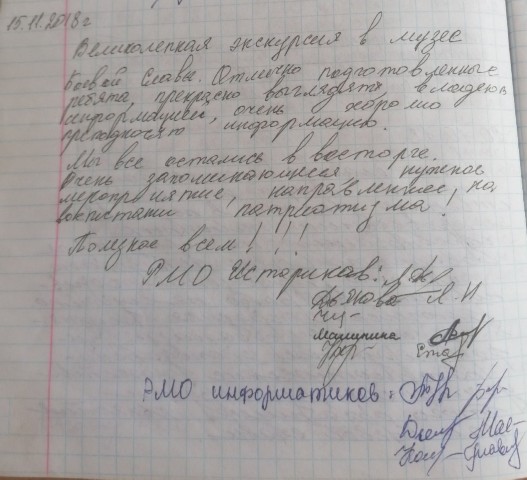 15.11.2018г
Великолепная экскурсия в музее
Боевой Славы. Отлично подготовленные
ребята, прекрасно выглядят, владеют
информацией, очень хорошо
преподносят информацию.
Мы все остались в восторге.
Очень запоминающееся нужное
мероприятие, направленное, на
воспитание патриотизма!
Полезное всем! !!!
РМО Историков:
Дьякова Л.Н
Машунина
РМО информатиков: